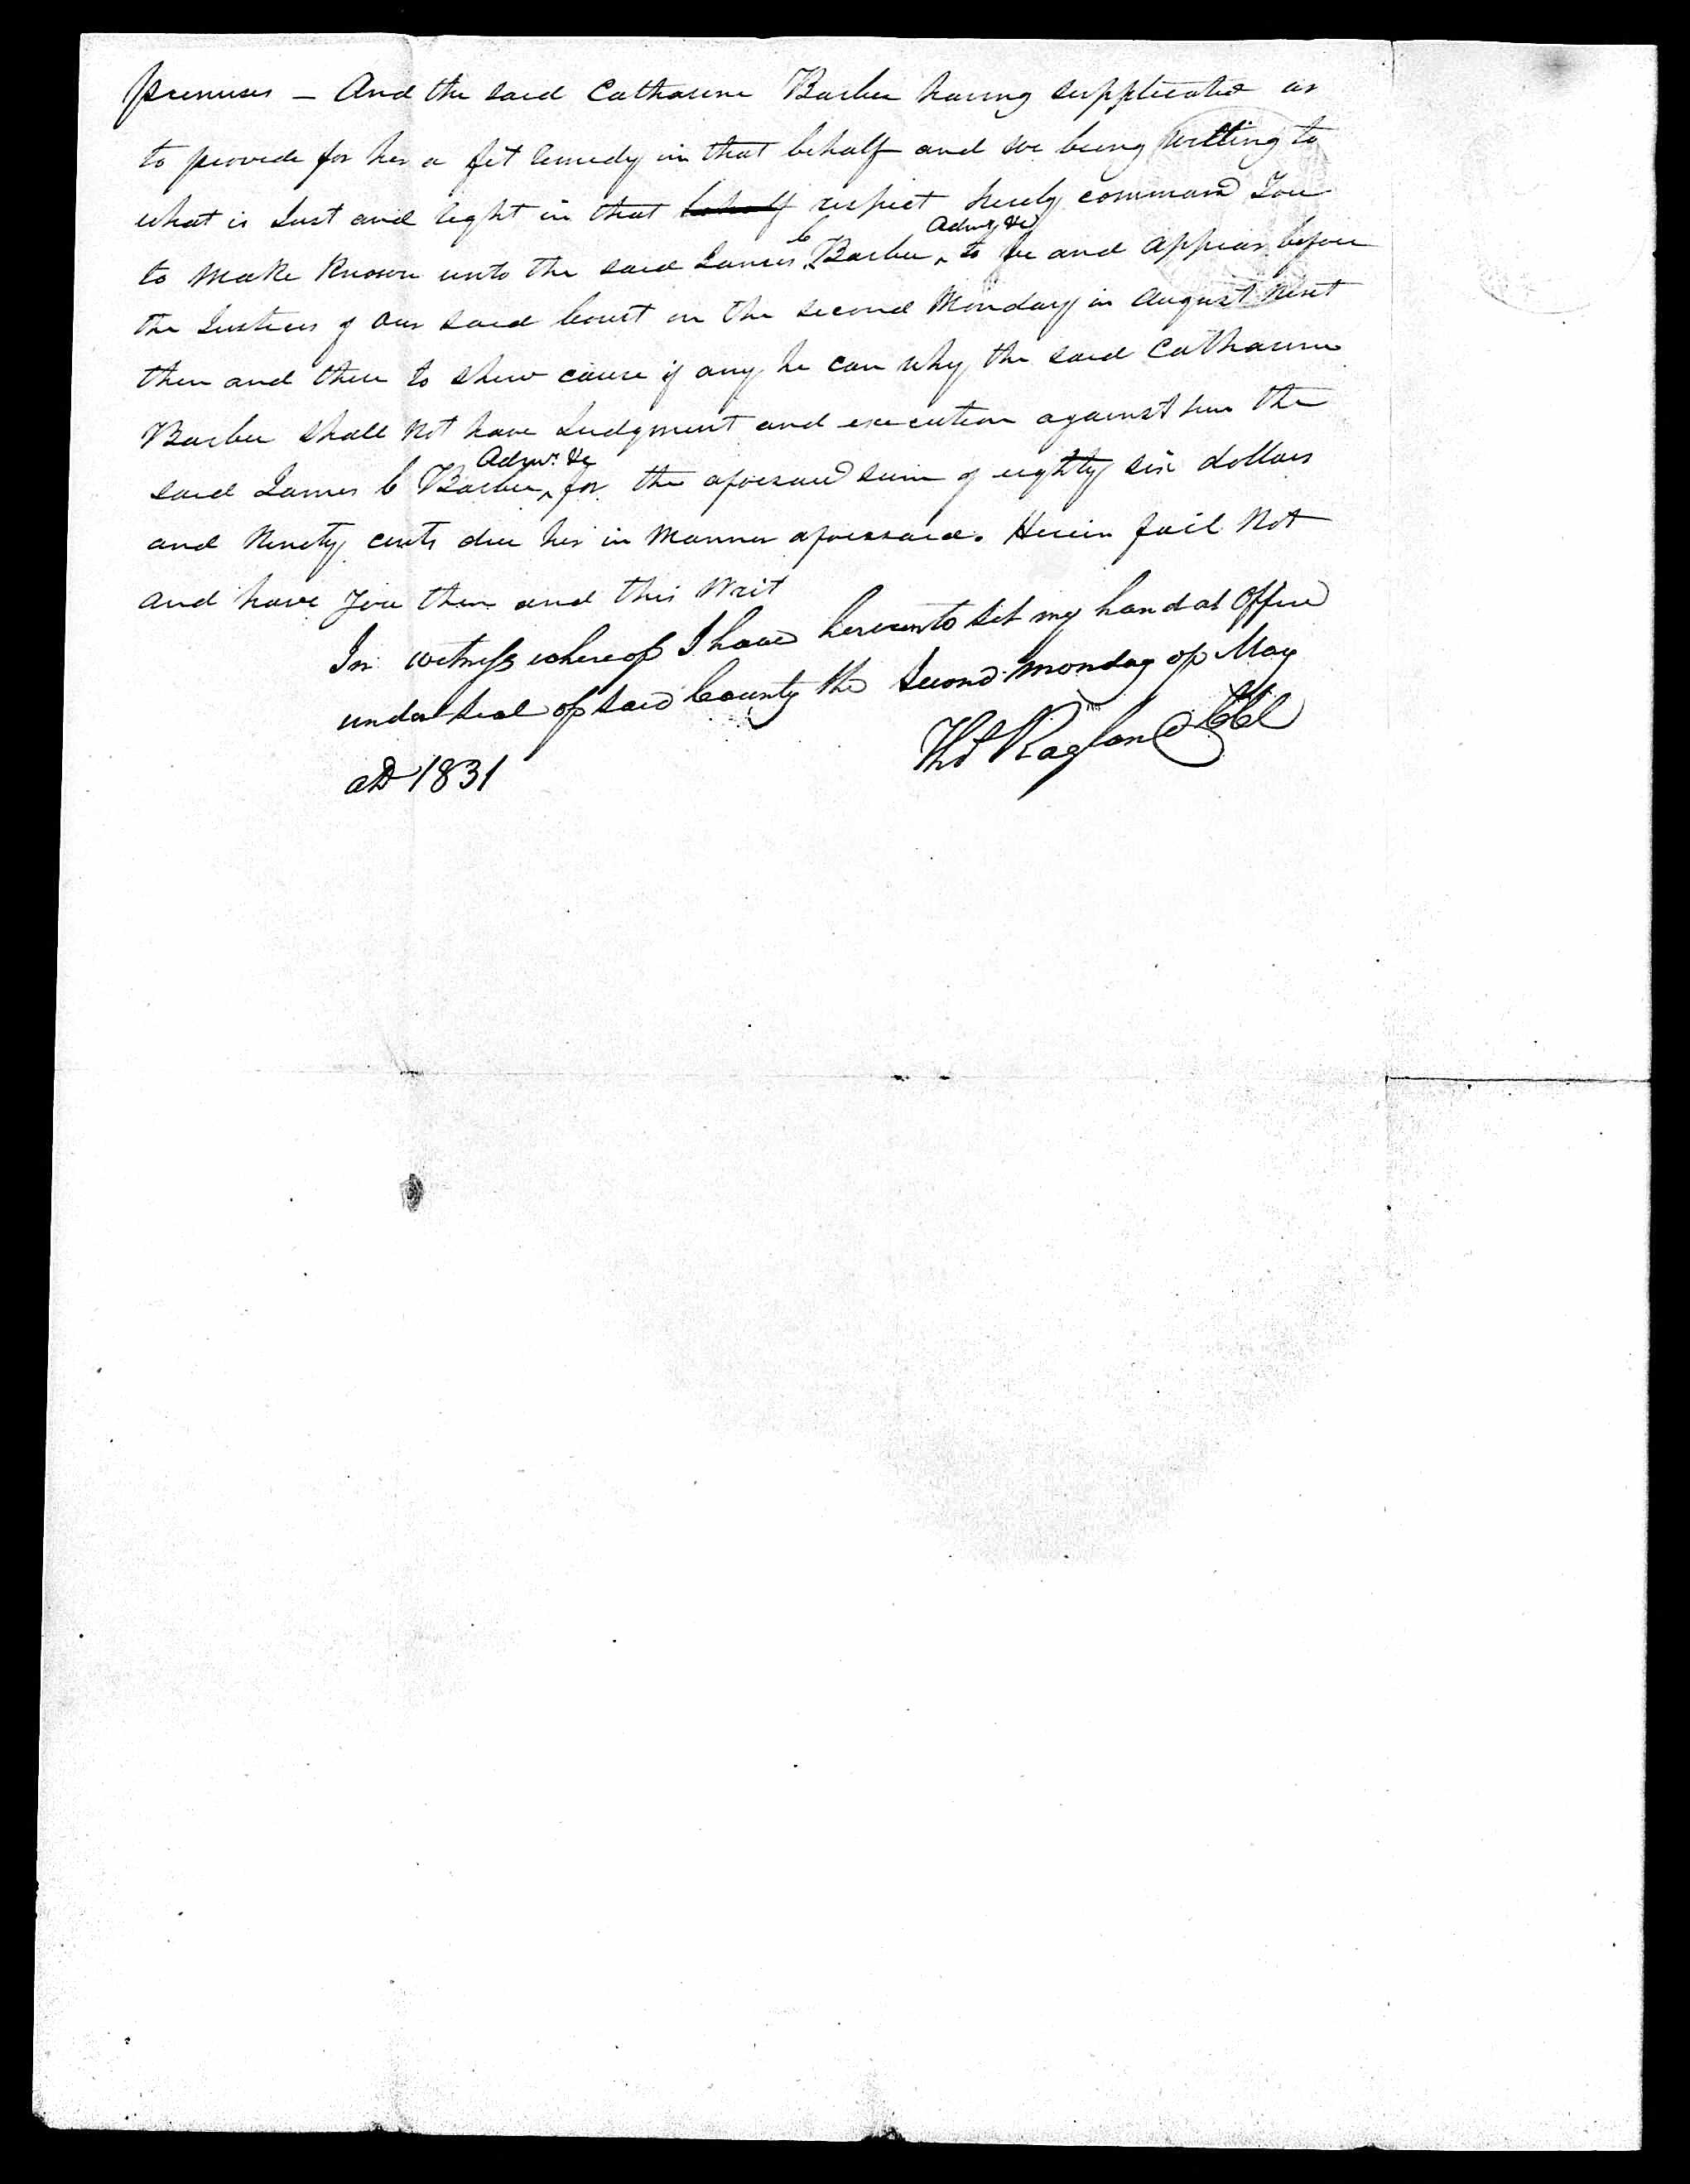 premises – And the said Catharine Barbee having supplicated us
to provide for her a fit remedy in that behalf and we being willing to
what is Just and right in that behalf respect hereby command You
to make Known unto the said James C Barbee Admr. &c to be and appear before
the Justices of our said Court on the second Monday in August Next
then and there to shew cause if any he can why the said Catharine
Barbee shall Not have Judgment and execution against him the
said James C Barbee Admr. &c for the aforesaid sum of eighty six dollars
and Ninety cents due her in Manner aforesaid. Herein fail Not
and have You then and this Writ
In witness whereof I have hereunto set my hand at Office
under seal of said County the Second Monday of May
AD 1831
ThS Ragland Clk